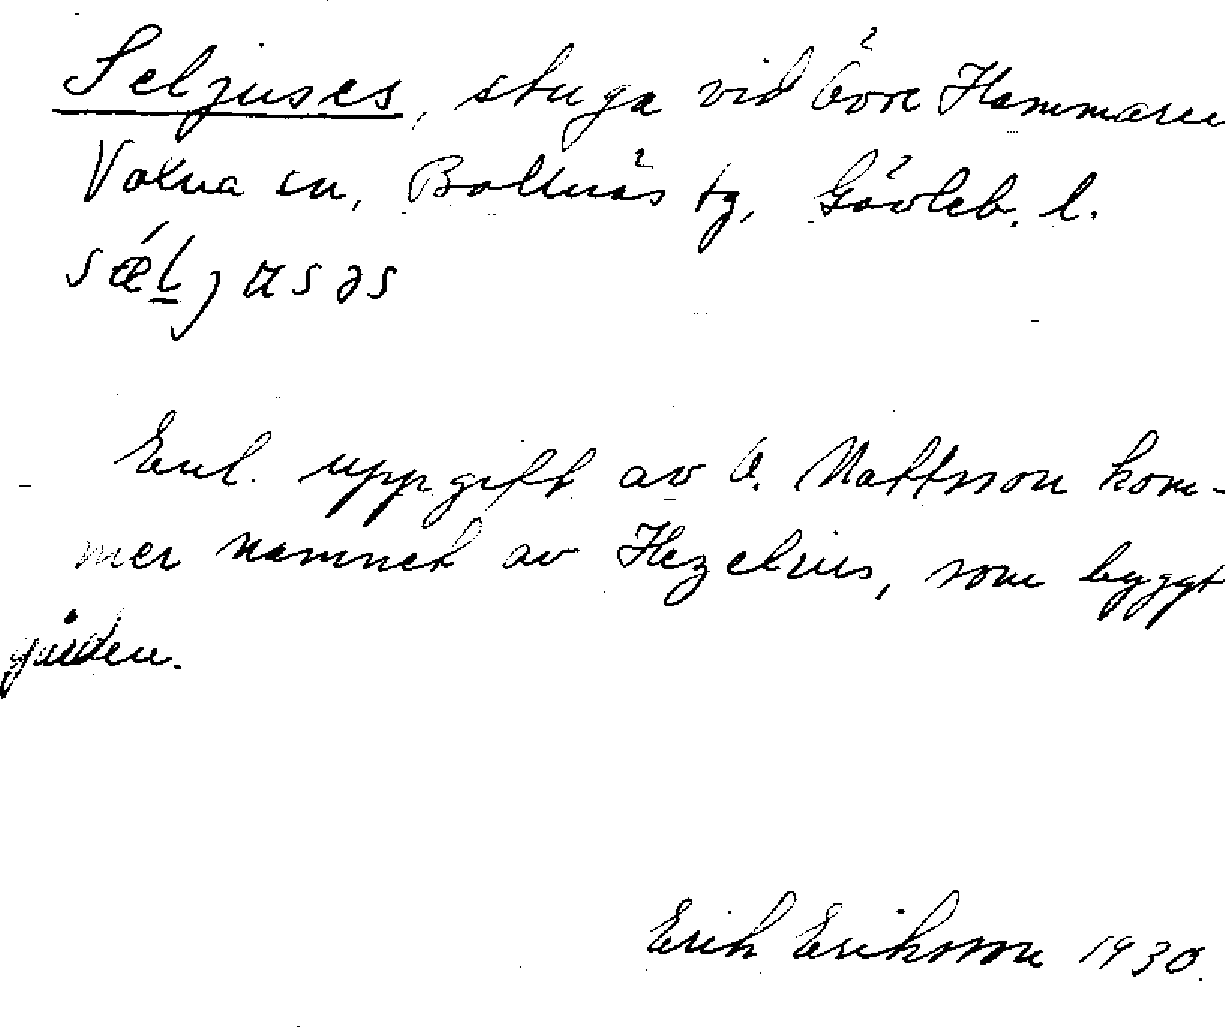 Seljuses, stuga vid Övre Hammaren
Voxna sn, Bollnäs tg, Gävleb. l.
sǽl̠jɑsəs
Enl. uppgift av O. Mattsson kom-
mer namnet av Hezelius, som byggt
gården.
Erik Eriksson 1930.